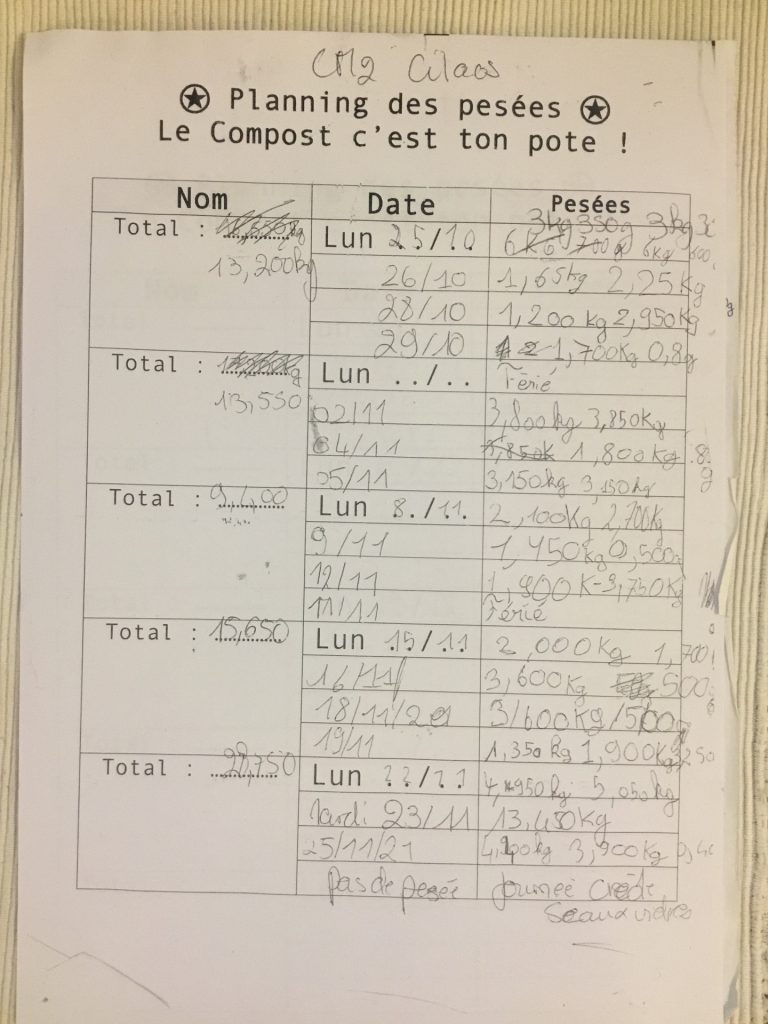 CM2 Cilaos
Planning des pesées
Le Compost c'est ton pote !
Nom Date Pesées
3kg 350g 3kg
Total : Lun 25/10 6kg
13,200kg
26/10 1,65kg 2,25Kg
28/10 1,200 kg 2,950Kg
29/10 1,700Kg 0,8g
Total : Lun ../.. Férié
13,550
02/11 3,800kg 3,850Kg
04/11 1,800Kg
05/11 3,150kg 3,150kg
Total : Lun 8./11. 2,100Kg 2,700Kg
9/11 1,450Kg 0,500
12/11 1,900K 3,750Kg
11/11 Férié
Total : 15,650 Lun 15/11 2,000Kg 1,700
16/11 3,600Kg 500
18/11/21 3/600KG/500g
19/11 1,350 kg 1,900Kg
Total : 28,750 Lun 22/11 4,950kg 5,050kg
Mardi 23/11 13,450Kg
25/11/21 3,900Kg
pas de pesée Journée
Seaux vides